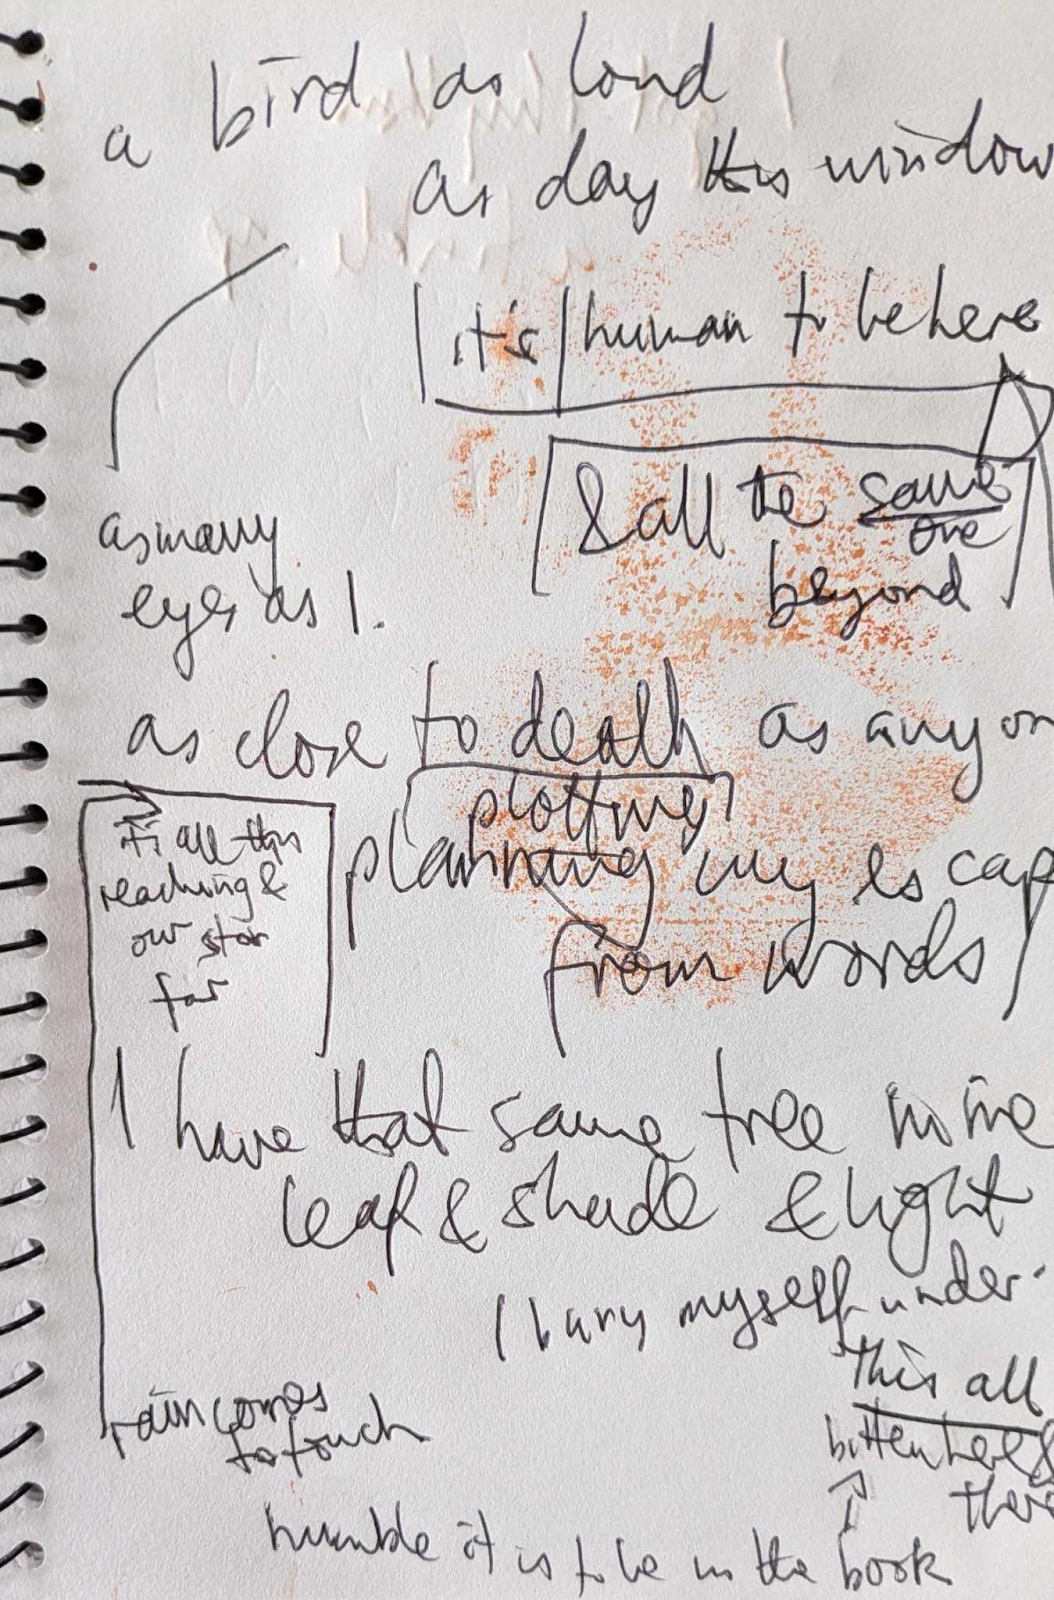 a bird as loud
as day this window
it's human to be here
& all the same
one
beyond
as many
eyes as I.
as close to death as anyon
plotting
planning my escap
from words
it's all this
reaching &
our star
far
I have that same tree in me
leaf & shade & light
I bury myself under
this all
bitten here &
ther
rain comes
to touch
humble it is to be in the book